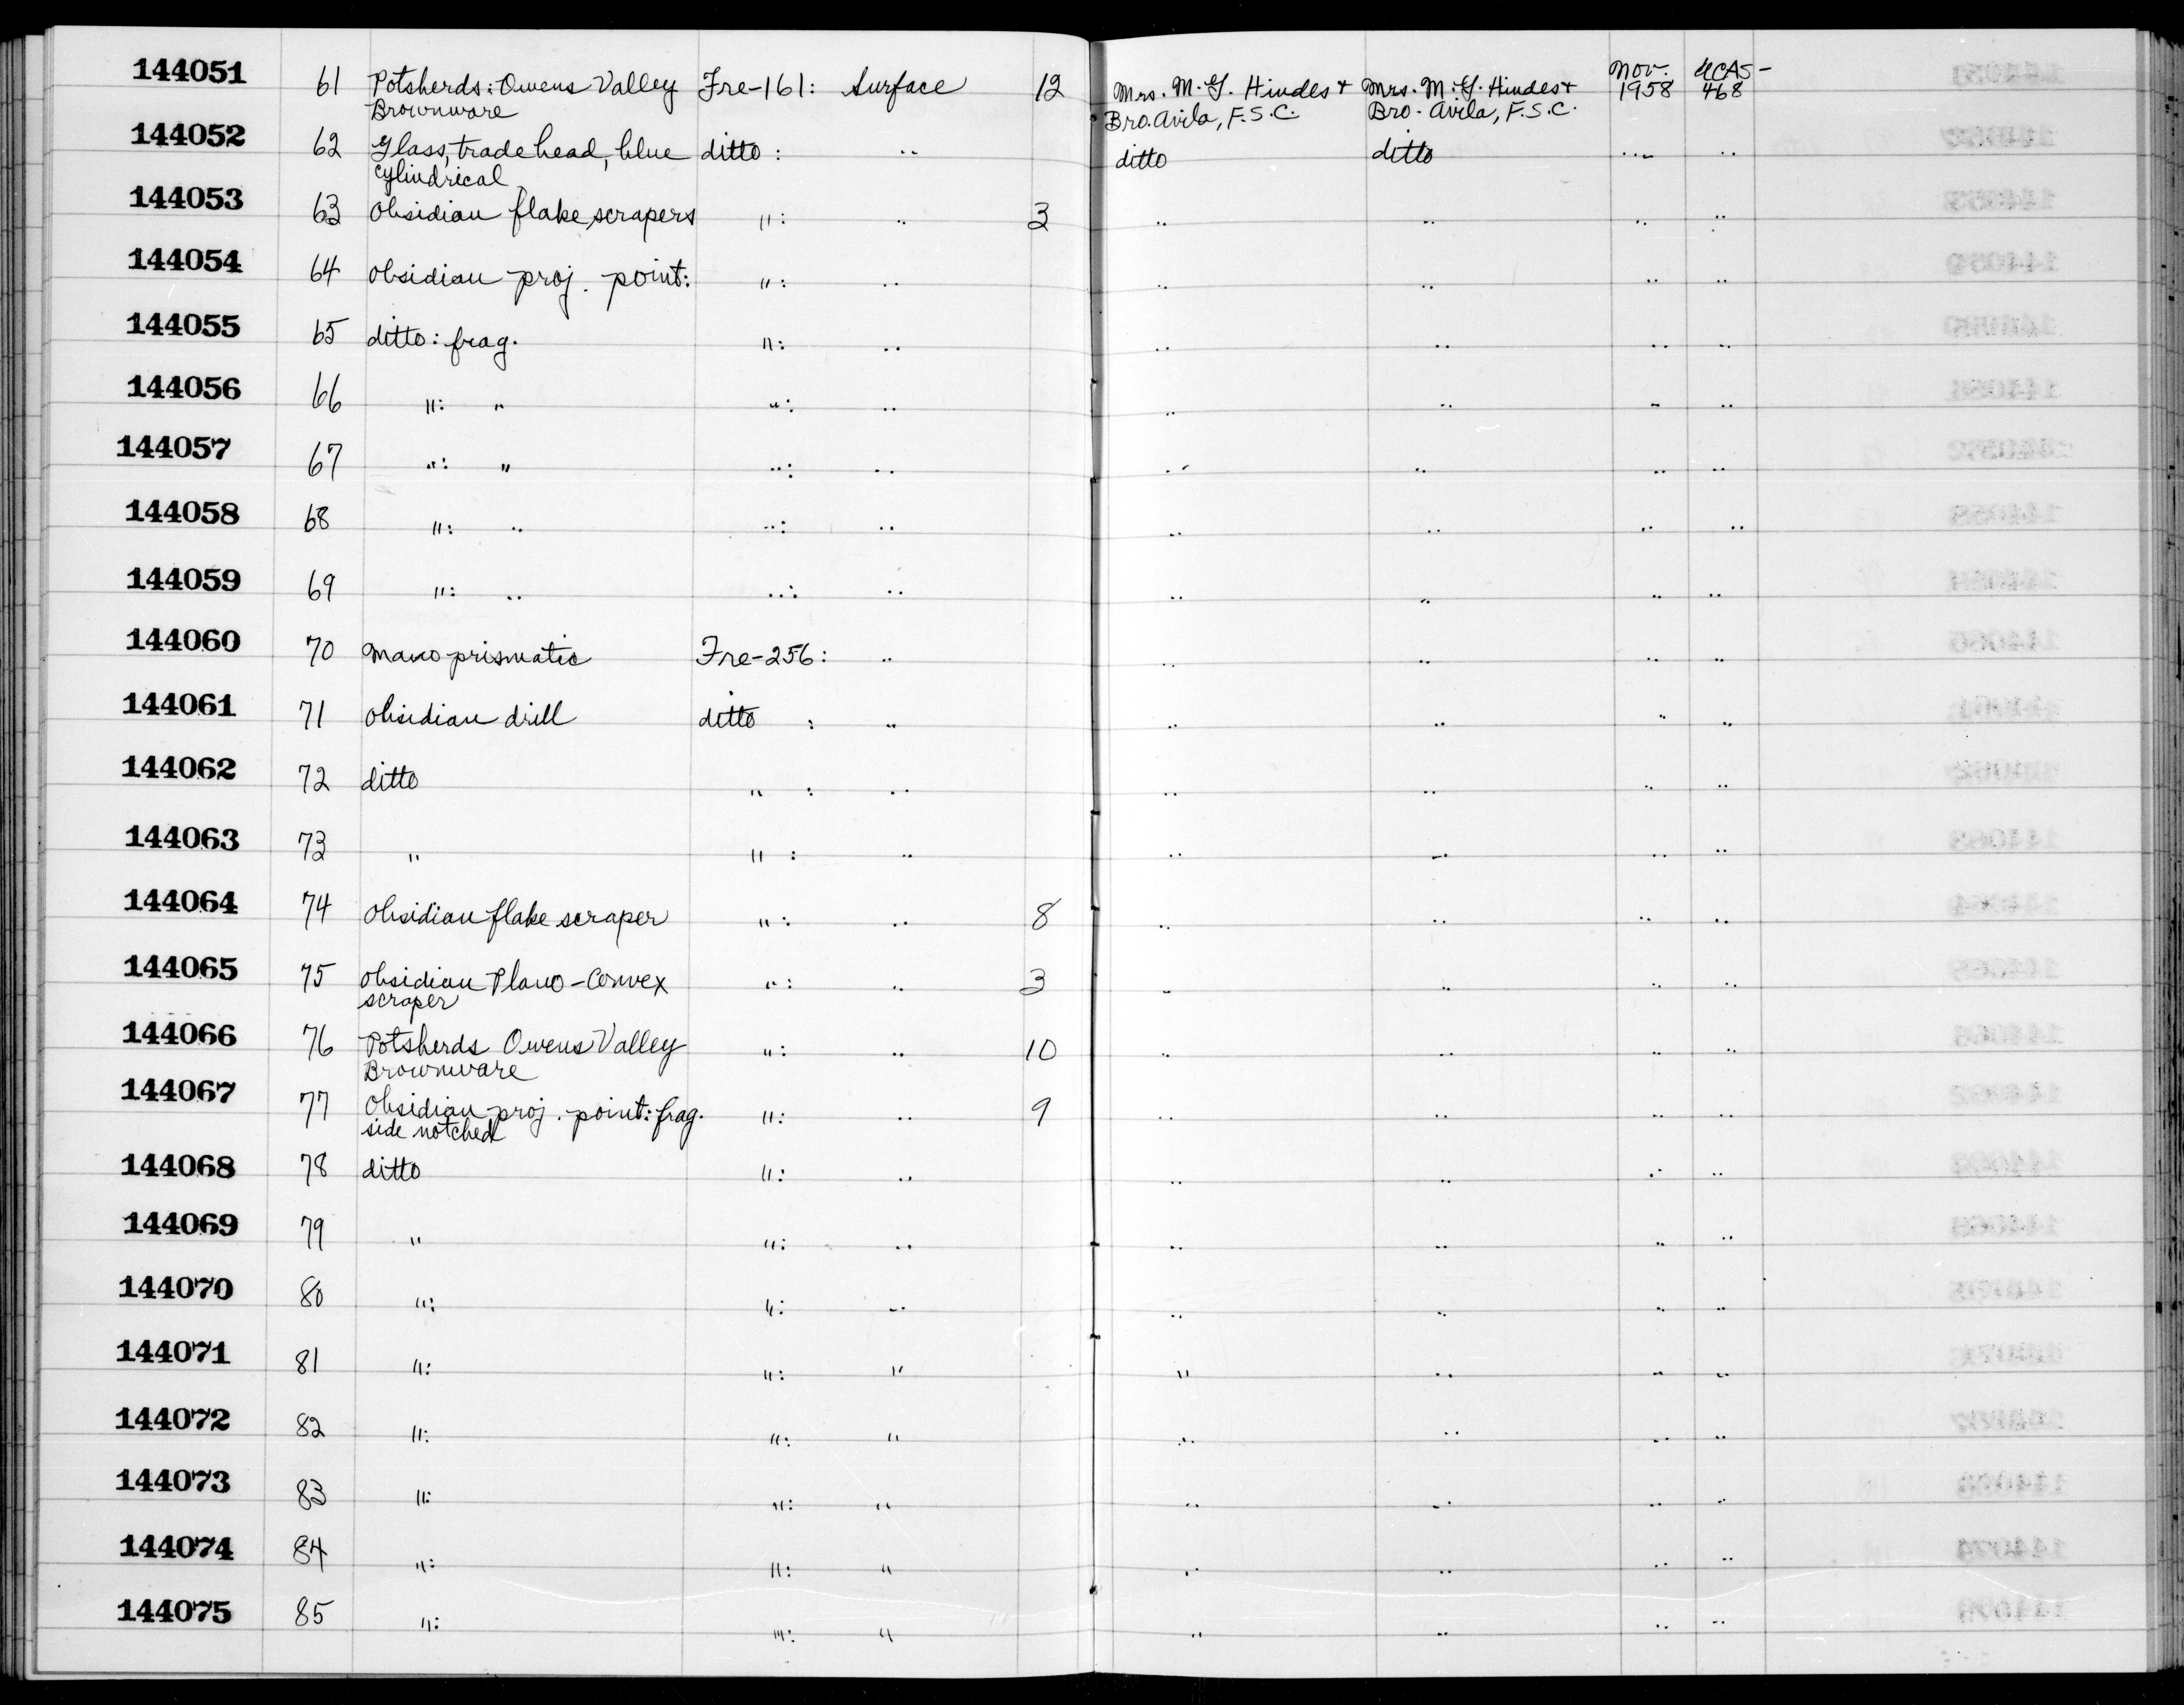 144051 61 Potsherds: Owens Valley Fre-161: Surface 12 Mrs. M. G. Hindes + Mrs. M. G. Hindes + Nov. 1958 UCAS-468
Brownware Bro. Avila, F.S.C. Bro. Avila, F.S.C.
144052 62 Glass, trade bead, blue ditto : " ditto ditto " "
cylindrical
144053 63 Obsidian flake scrapers " : " 3 " " " "
144054 64 obsidian proj. point: " : " " " " "
144055 65 ditto: frag. " : " " " " "
144056 66 " : " " : " " " " "
144057 67 " : " " : " " " " "
144058 68 " : " " : " " " " "
144059 69 " : " " : " " " " "
144060 70 mano prismatic Fre-256: " " " " "
144061 71 obsidian drill ditto : " " " " "
144062 72 ditto " : " " " " "
144063 73 " " : " " " " "
144064 74 obsidian flake scraper " : " 8 " " " "
144065 75 obsidian Plano-Convex " : " 3 " " " "
scraper
144066 76 Potsherds Owens Valley " : " 10 " " " "
Brownware
144067 77 Obsidian proj. point: frag. " : " 9 " " " "
side notched
144068 78 ditto " : " " " " "
144069 79 " " : " " " " "
144070 80 " : " : " " " " "
144071 81 " : " : " " " " "
144072 82 " : " : " " " " "
144073 83 " : " : " " " " "
144074 84 " : " : " " " " "
144075 85 " : " : " " " " "